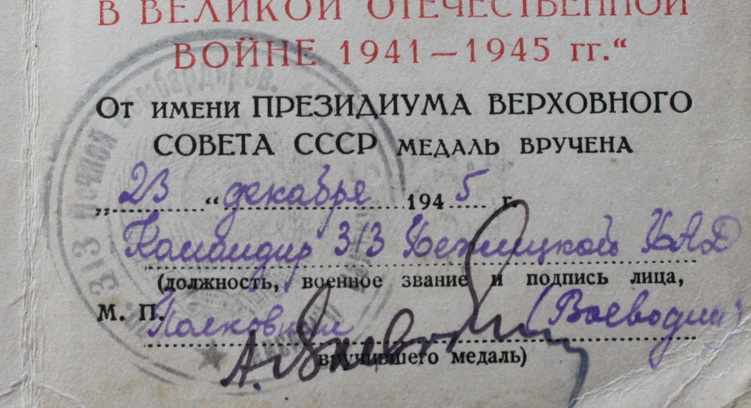 В ВЕЛИКОЙ ОТЕЧЕСТВЕННОЙ
ВОЙНЕ 1941—1945 гг.“
От имени ПРЕЗИДИУМА ВЕРХОВНОГО
СОВЕТА СССР медаль вручена
„23“ декабря 1945 г.
Командир 313 Бежицкой НАД
(должность, военное звание и подпись лица,
М. П. Полковник (Воеводин)
вручившего медаль)
313 Ночная Бомбардиров.